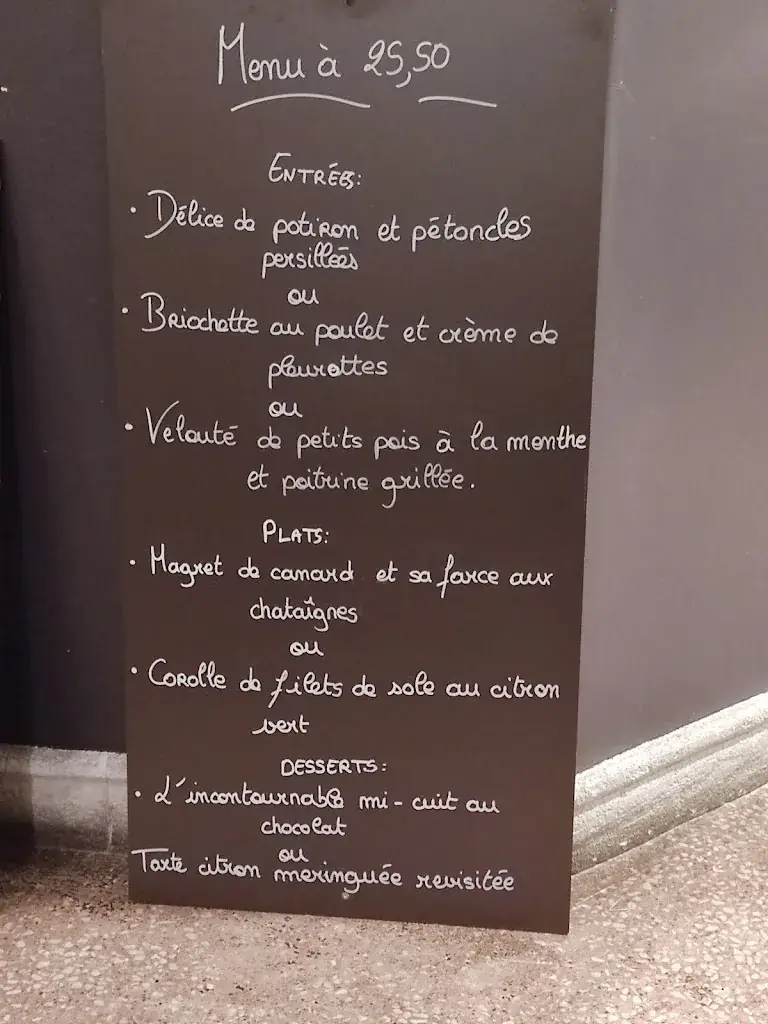 Menu à 25,50
ENTRÉES:
• Délice de potiron et pétoncles
persillées
ou
• Briochette au poulet et crème de
pleurottes
ou
• Velouté de petits pois à la menthe
et poitrine grillée.
PLATS:
• Magret de canard et sa farce aux
chataîgnes
ou
• Corolle de filets de sole au citron
vert
DESSERTS:
• L'incontournable mi-cuit au
chocolat
ou
Tarte citron meringuée revisitée